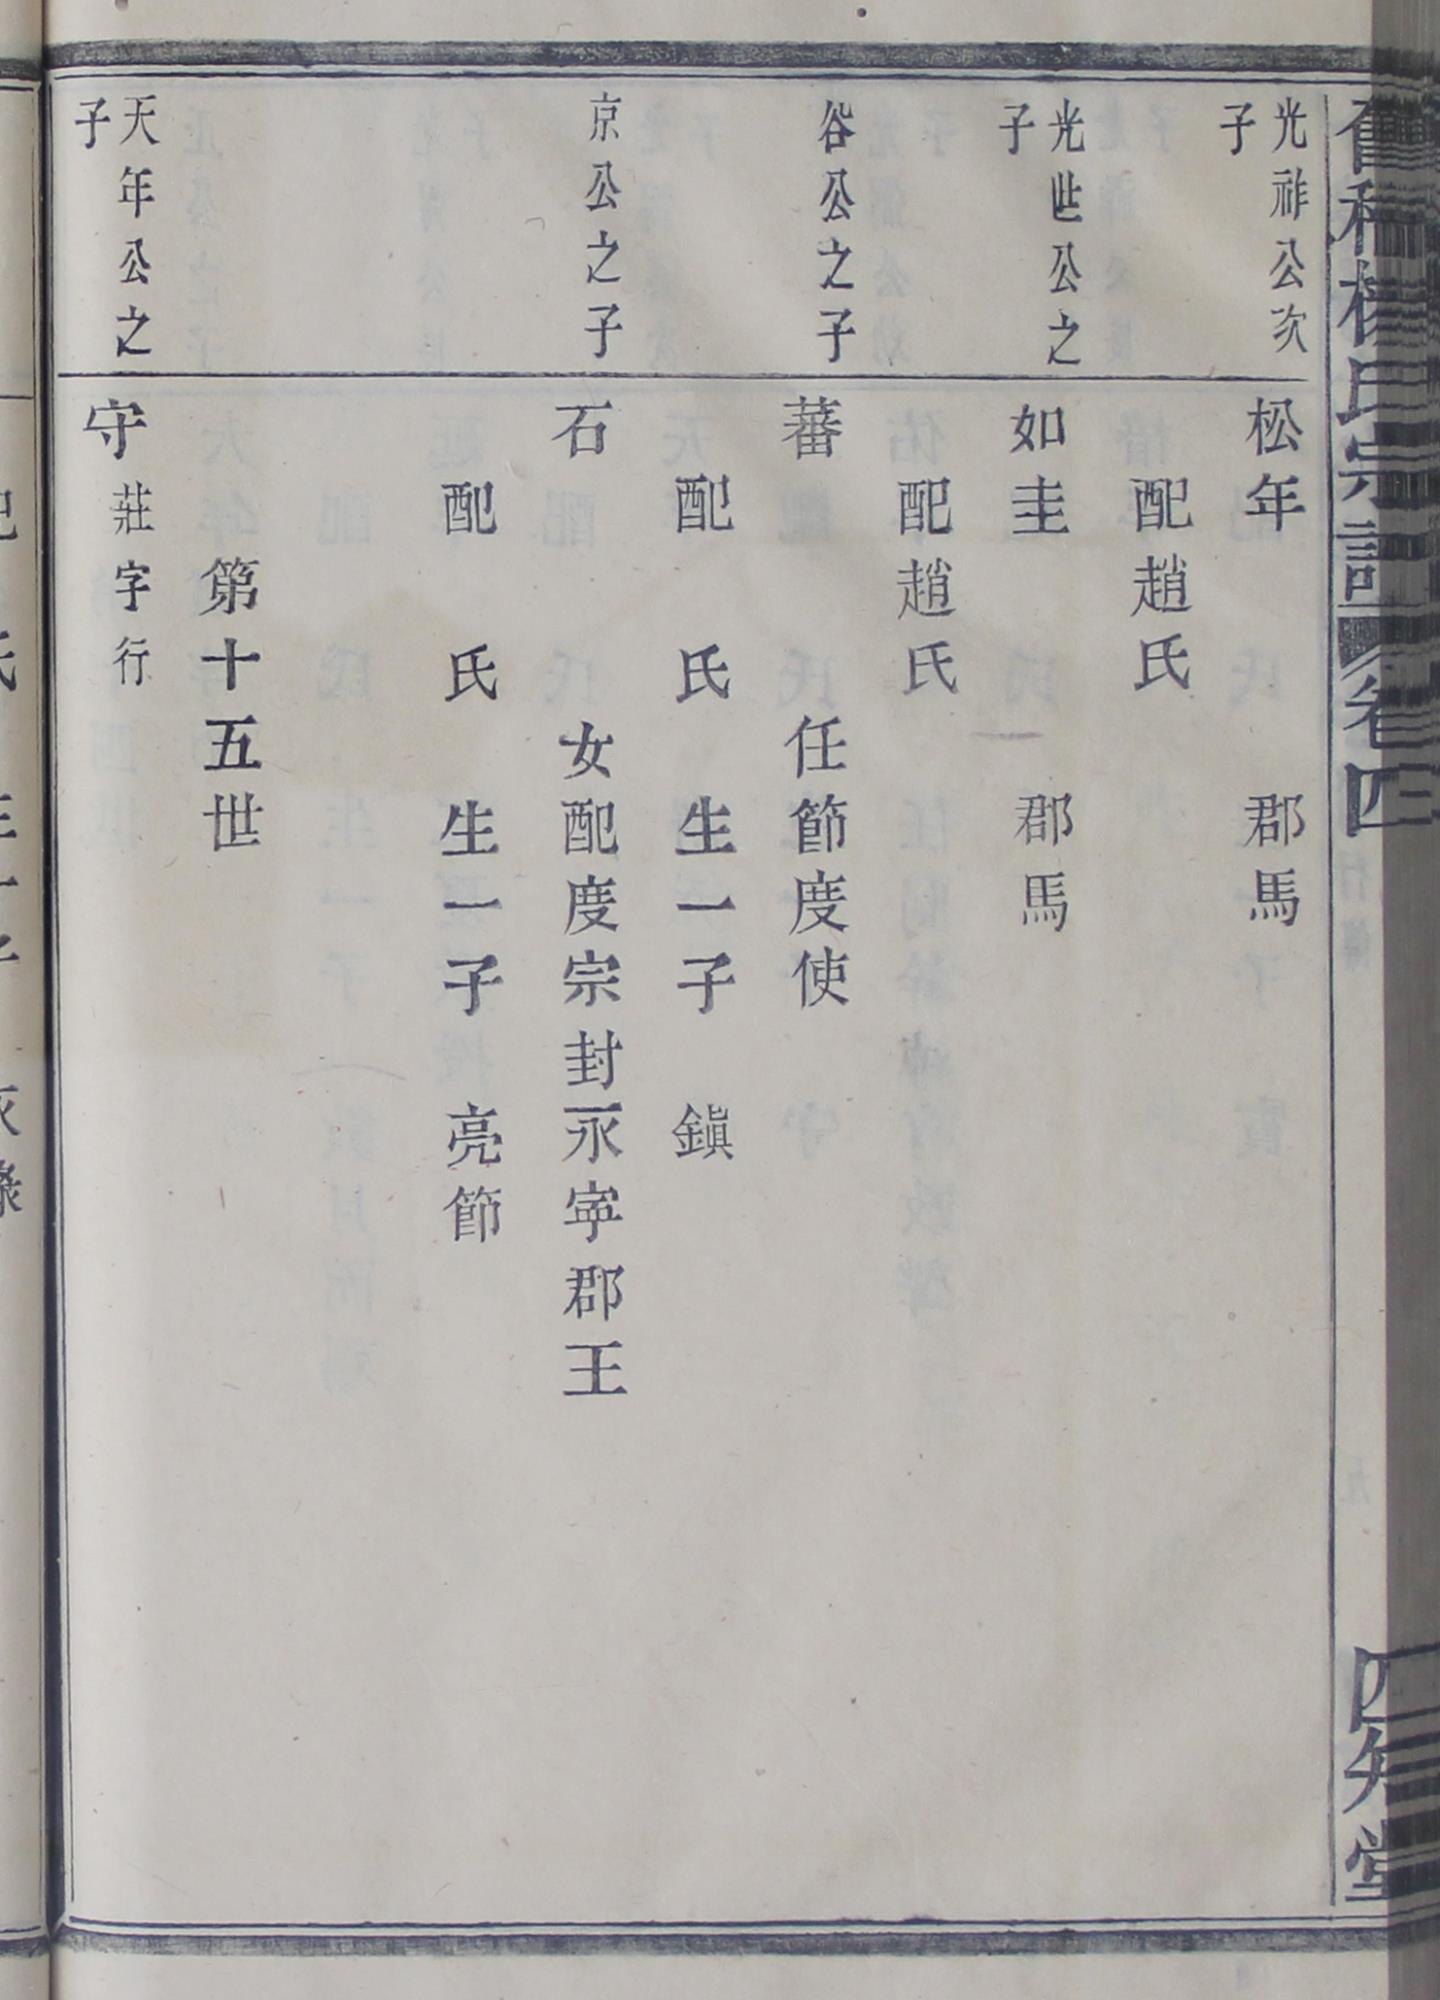 舊種楊氏宗譜 卷四 四知堂
光祚公次子
松年 郡馬
配趙氏
光世公之子
如圭 郡馬
配趙氏
谷公之子
蕃 任節度使
配 氏 生一子 鎭
京公之子
石 女配度宗封永寧郡王
配 氏 生一子 亮節
第十五世
天年公之子
守 莊字行